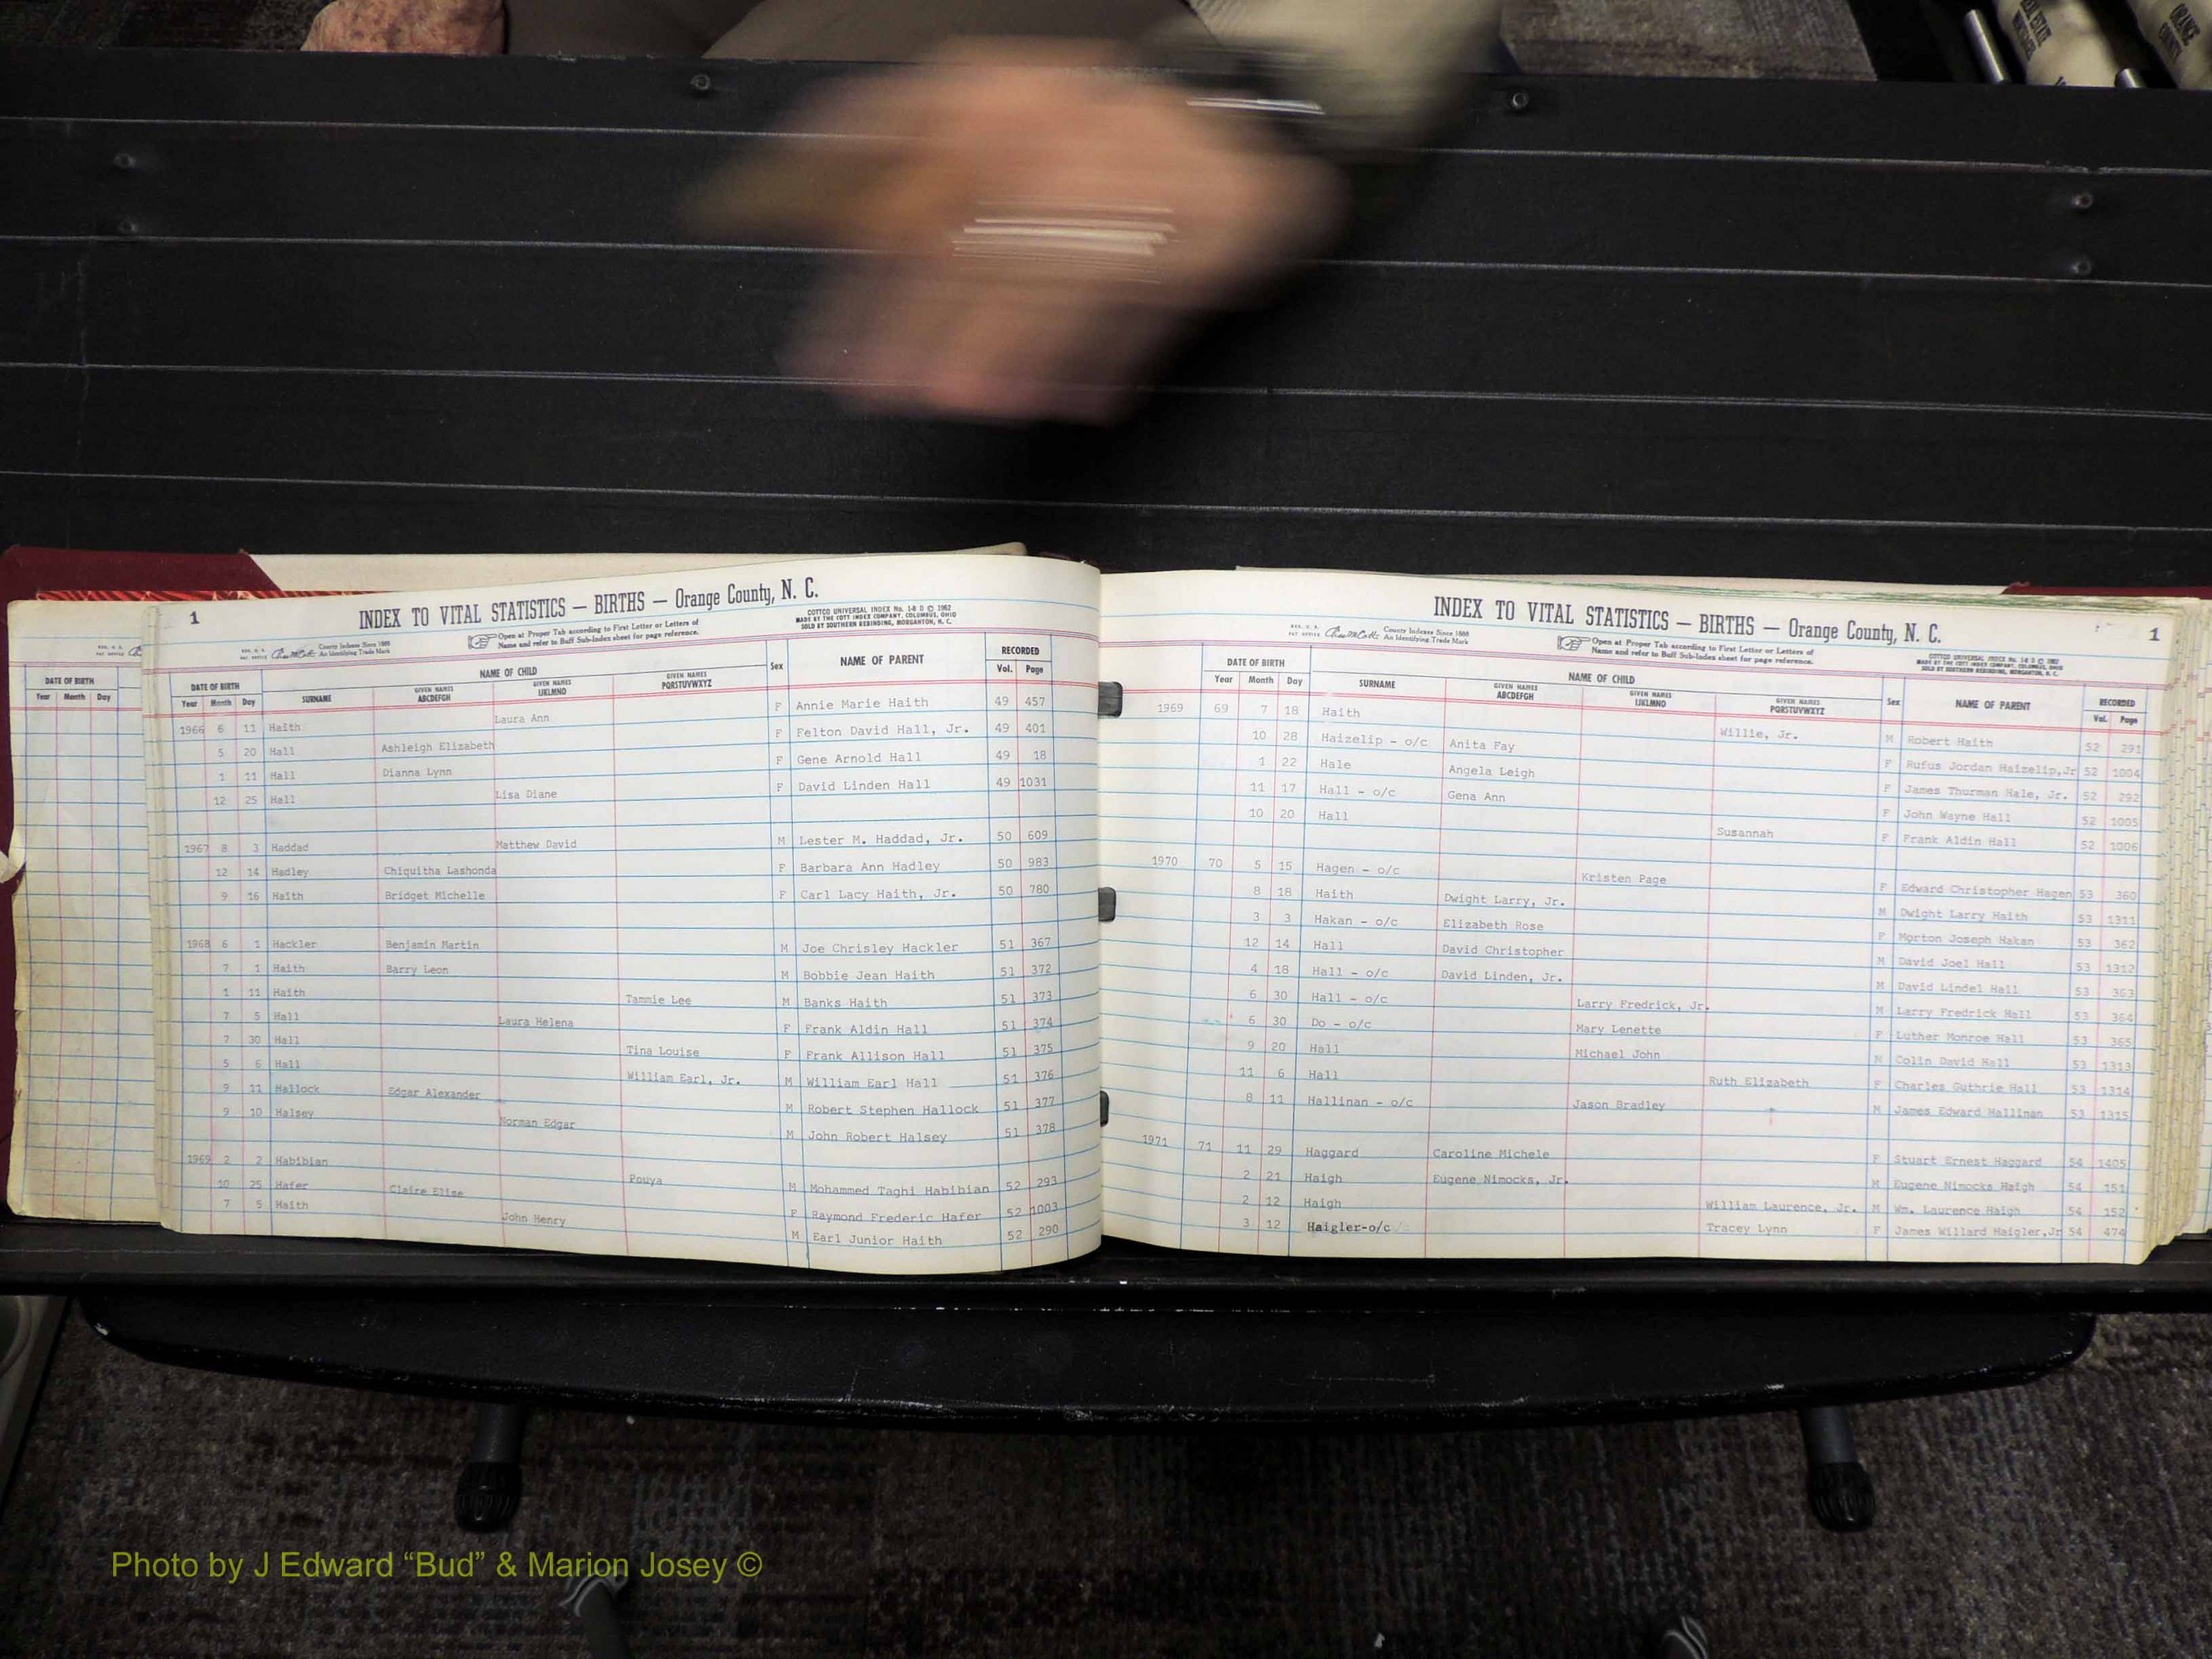 REAL ESTATE
ORANGE COUNTY
DATE OF BIRTH
Year Month Day
1
INDEX TO VITAL STATISTICS — BIRTHS — Orange County, N. C.
County Indexes Since 1888
An Identifying Trade Mark
Open at Proper Tab according to First Letter or Letters of
Name and refer to Buff Sub-Index sheet for page reference.
COTTCO UNIVERSAL INDEX No. 1-8 D © 1962
MADE BY THE COTT INDEX COMPANY, COLUMBUS, OHIO
SOLD BY SOUTHERN REBINDING, MORGANTON, N. C.
DATE OF BIRTH NAME OF CHILD Sex NAME OF PARENT RECORDED
Year Month Day SURNAME GIVEN NAMES ABCDEFGH GIVEN NAMES IJKLMNO GIVEN NAMES PQRSTUVWXYZ Vol. Page
1966 6 13 Haith Laura Ann F Annie Marie Haith 49 457
5 20 Hall Ashleigh Elizabeth F Felton David Hall, Jr. 49 401
1 11 Hall Dianna Lynn F Gene Arnold Hall 49 18
12 25 Hall Lisa Diane F David Linden Hall 49 1031
1967 8 3 Haddad Matthew David M Lester M. Haddad, Jr. 50 609
12 14 Hadley Chiquitha Lashonda F Barbara Ann Hadley 50 983
9 16 Haith Bridget Michelle F Carl Lacy Haith, Jr. 50 780
1968 6 1 Hackler Benjamin Martin M Joe Chrisley Hackler 51 367
7 1 Haith Barry Leon M Bobbie Jean Haith 51 372
1 11 Haith Tammie Lee M Banks Haith 51 373
7 5 Hall Laura Helena F Frank Aldin Hall 51 374
7 30 Hall Tina Louise F Frank Allison Hall 51 375
5 6 Hall William Earl, Jr. M William Earl Hall 51 376
9 11 Hallock Edgar Alexander M Robert Stephen Hallock 51 377
9 10 Halsey Norman Edgar M John Robert Halsey 51 378
1969 2 2 Habibian Pouya M Mohammed Taghi Habibian 52 293
10 25 Hafer Claire Elise F Raymond Frederic Hafer 52 1003
7 5 Haith John Henry M Earl Junior Haith 52 290
INDEX TO VITAL STATISTICS — BIRTHS — Orange County, N. C.
1
County Indexes Since 1888
An Identifying Trade Mark
Open at Proper Tab according to First Letter or Letters of
Name and refer to Buff Sub-Index sheet for page reference.
COTTCO UNIVERSAL INDEX No. 1-8 D © 1962
MADE BY THE COTT INDEX COMPANY, COLUMBUS, OHIO
SOLD BY SOUTHERN REBINDING, MORGANTON, N. C.
DATE OF BIRTH NAME OF CHILD Sex NAME OF PARENT RECORDED
Year Month Day SURNAME GIVEN NAMES ABCDEFGH GIVEN NAMES IJKLMNO GIVEN NAMES PQRSTUVWXYZ Vol. Page
1969 69 7 18 Haith Willie, Jr. M Robert Haith 52 291
10 28 Haizelip - o/c Anita Fay F Rufus Jordan Haizelip,Jr 52 1004
1 22 Hale Angela Leigh F James Thurman Hale, Jr. 52 292
11 17 Hall - o/c Gena Ann F John Wayne Hall 52 1005
10 20 Hall Susannah F Frank Aldin Hall 52 1006
1970 70 5 15 Hagen - o/c Kristen Page F Edward Christopher Hagen 53 360
8 18 Haith Dwight Larry, Jr. M Dwight Larry Haith 53 1311
3 3 Hakan - o/c Elizabeth Rose F Morton Joseph Hakan 53 362
12 14 Hall David Christopher M David Joel Hall 53 1312
4 18 Hall - o/c David Linden, Jr. M David Lindel Hall 53 363
6 30 Hall - o/c Larry Fredrick, Jr. M Larry Fredrick Hall 53 364
6 30 Do - o/c Mary Lenette F Luther Monroe Hall 53 365
9 20 Hall Michael John M Colin David Hall 53 1313
11 6 Hall Ruth Elizabeth F Charles Guthrie Hall 53 1314
8 11 Hallinan - o/c Jason Bradley M James Edward Hallinan 53 1315
1971 71 11 29 Haggard Caroline Michele F Stuart Ernest Haggard 54 1405
2 21 Haigh Eugene Nimocks, Jr. M Eugene Nimocks Haigh 54 151
2 12 Haigh William Laurence, Jr. M Wm. Laurence Haigh 54 152
3 12 Haigler-o/c Tracey Lynn F James Willard Haigler,Jr 54 474
Photo by J Edward “Bud” & Marion Josey ©